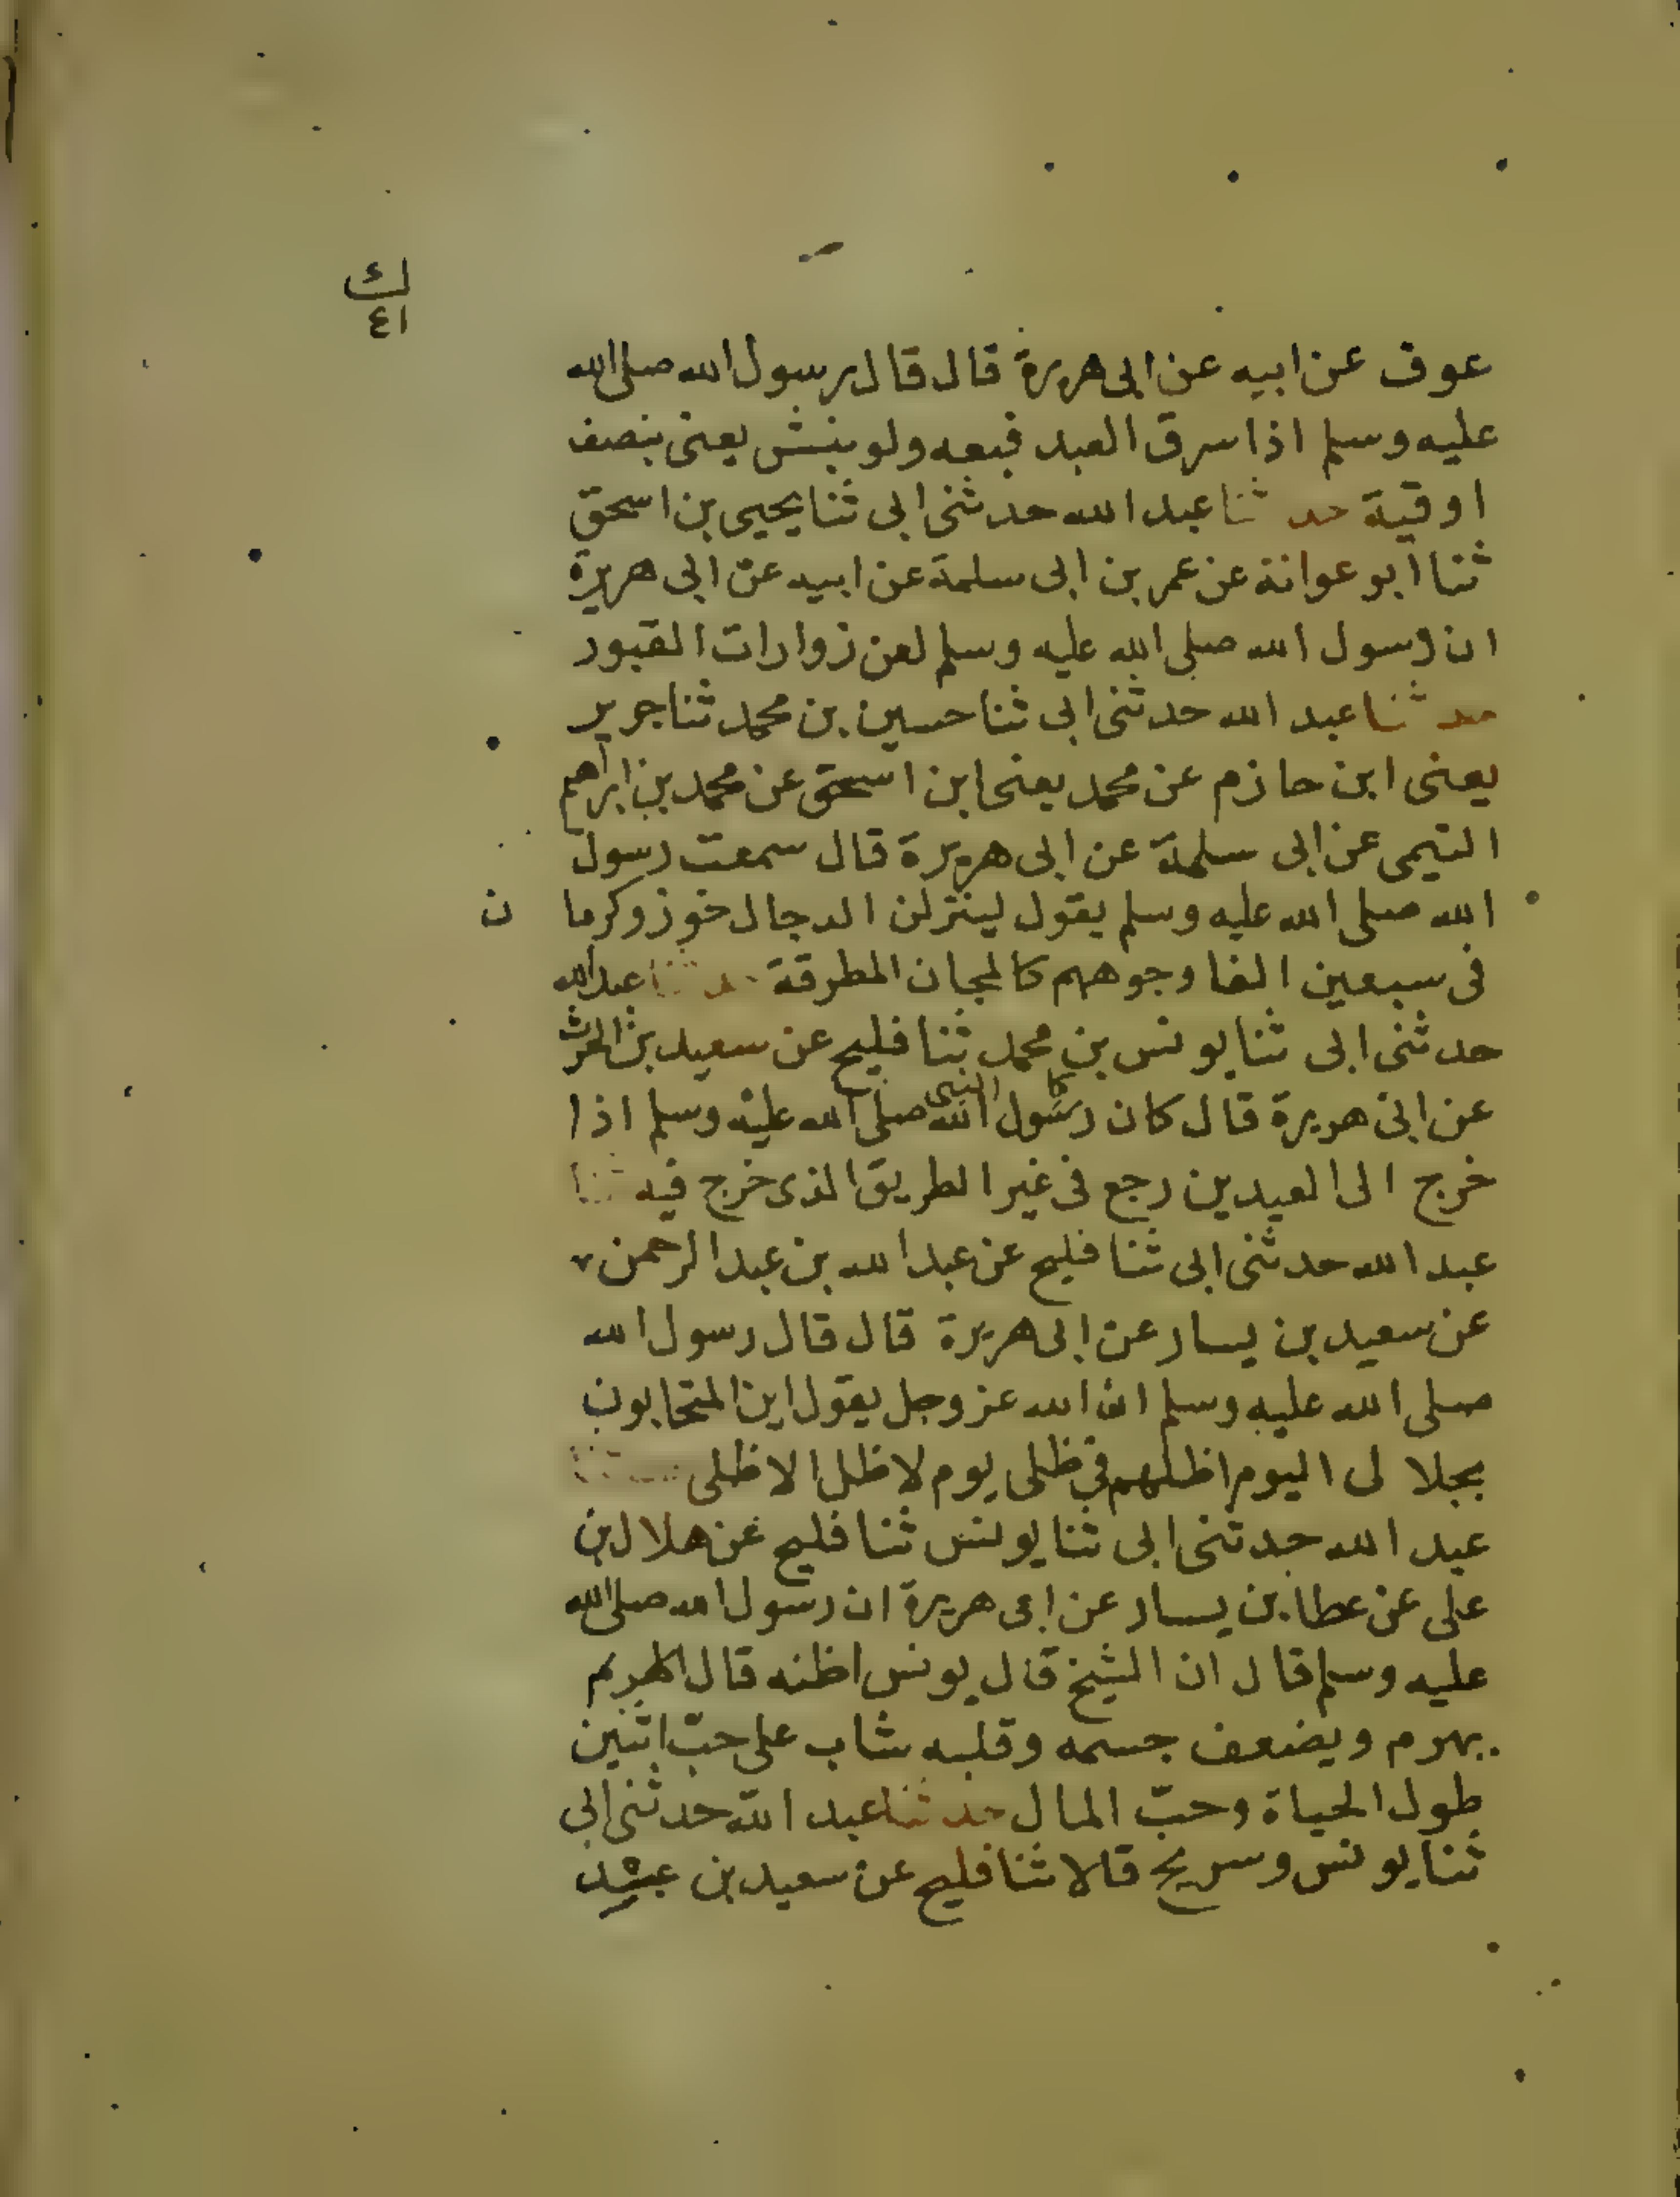 ك
٤١
عوف عن ابيه عن ابى هريرة قال قال رسول الله صلى الله
عليه وسلم اذا سرق العبد فبعه ولو بنش يعنى بنصف
اوقية حد ثنا عبد الله حدثنى ابى ثنا يحيى بن اسحق
ثنا ابو عوانة عن عمر بن ابى سلمة عن ابيه عن ابى هريرة
ان رسول الله صلى الله عليه وسلم لعن زوارات القبور
حد ثنا عبد الله حدثنى ابى ثنا حسين بن محمد ثنا جرير
يعنى ابن حازم عن محمد يعنى ابن اسحق عن محمد بن ابراهم
التيمى عن ابى سلمة عن ابى هريرة قال سمعت رسول
الله صلى الله عليه وسلم يقول لينزلن الدجال خوز وكرما ن
فى سبعين الفا وجوههم كالمجان المطرقة حد ثنا عبد الله
حدثنى ابى ثنا يونس بن محمد ثنا فليح عن سعيد بن الحرث
عن ابى هريرة قال كان رسول الله النبى صلى الله عليه وسلم اذا
خرج الى العيدين رجع فى غير الطريق الذى خرج فيه ثنا
عبد الله حدثنى ابى ثنا فليح عن عبد الله بن عبد الرحمن
عن سعيد بن يسار عن ابى هريرة قال قال رسول الله
صلى الله عليه وسلم ان الله عز وجل يقول اين المتحابون
بجلا لى اليوم اظلهم فى ظلى يوم لا ظل الا ظلى حد ثنا
عبد الله حدثنى ابى ثنا يونس ثنا فليح عن هلال بن
على عن عطا بن يسار عن ابى هريرة ان رسول الله صلى الله
عليه وسلم قال ان الشيخ قال يونس اظنه قال
يهرم ويضعف جسمه وقلبه شاب على حبّ اثنين
طول الحياة وحبّ المال حد ثنا عبد الله حدثنى ابى
ثنا يونس وسريج قالا ثنا فليح عن سعيد بن عبيد